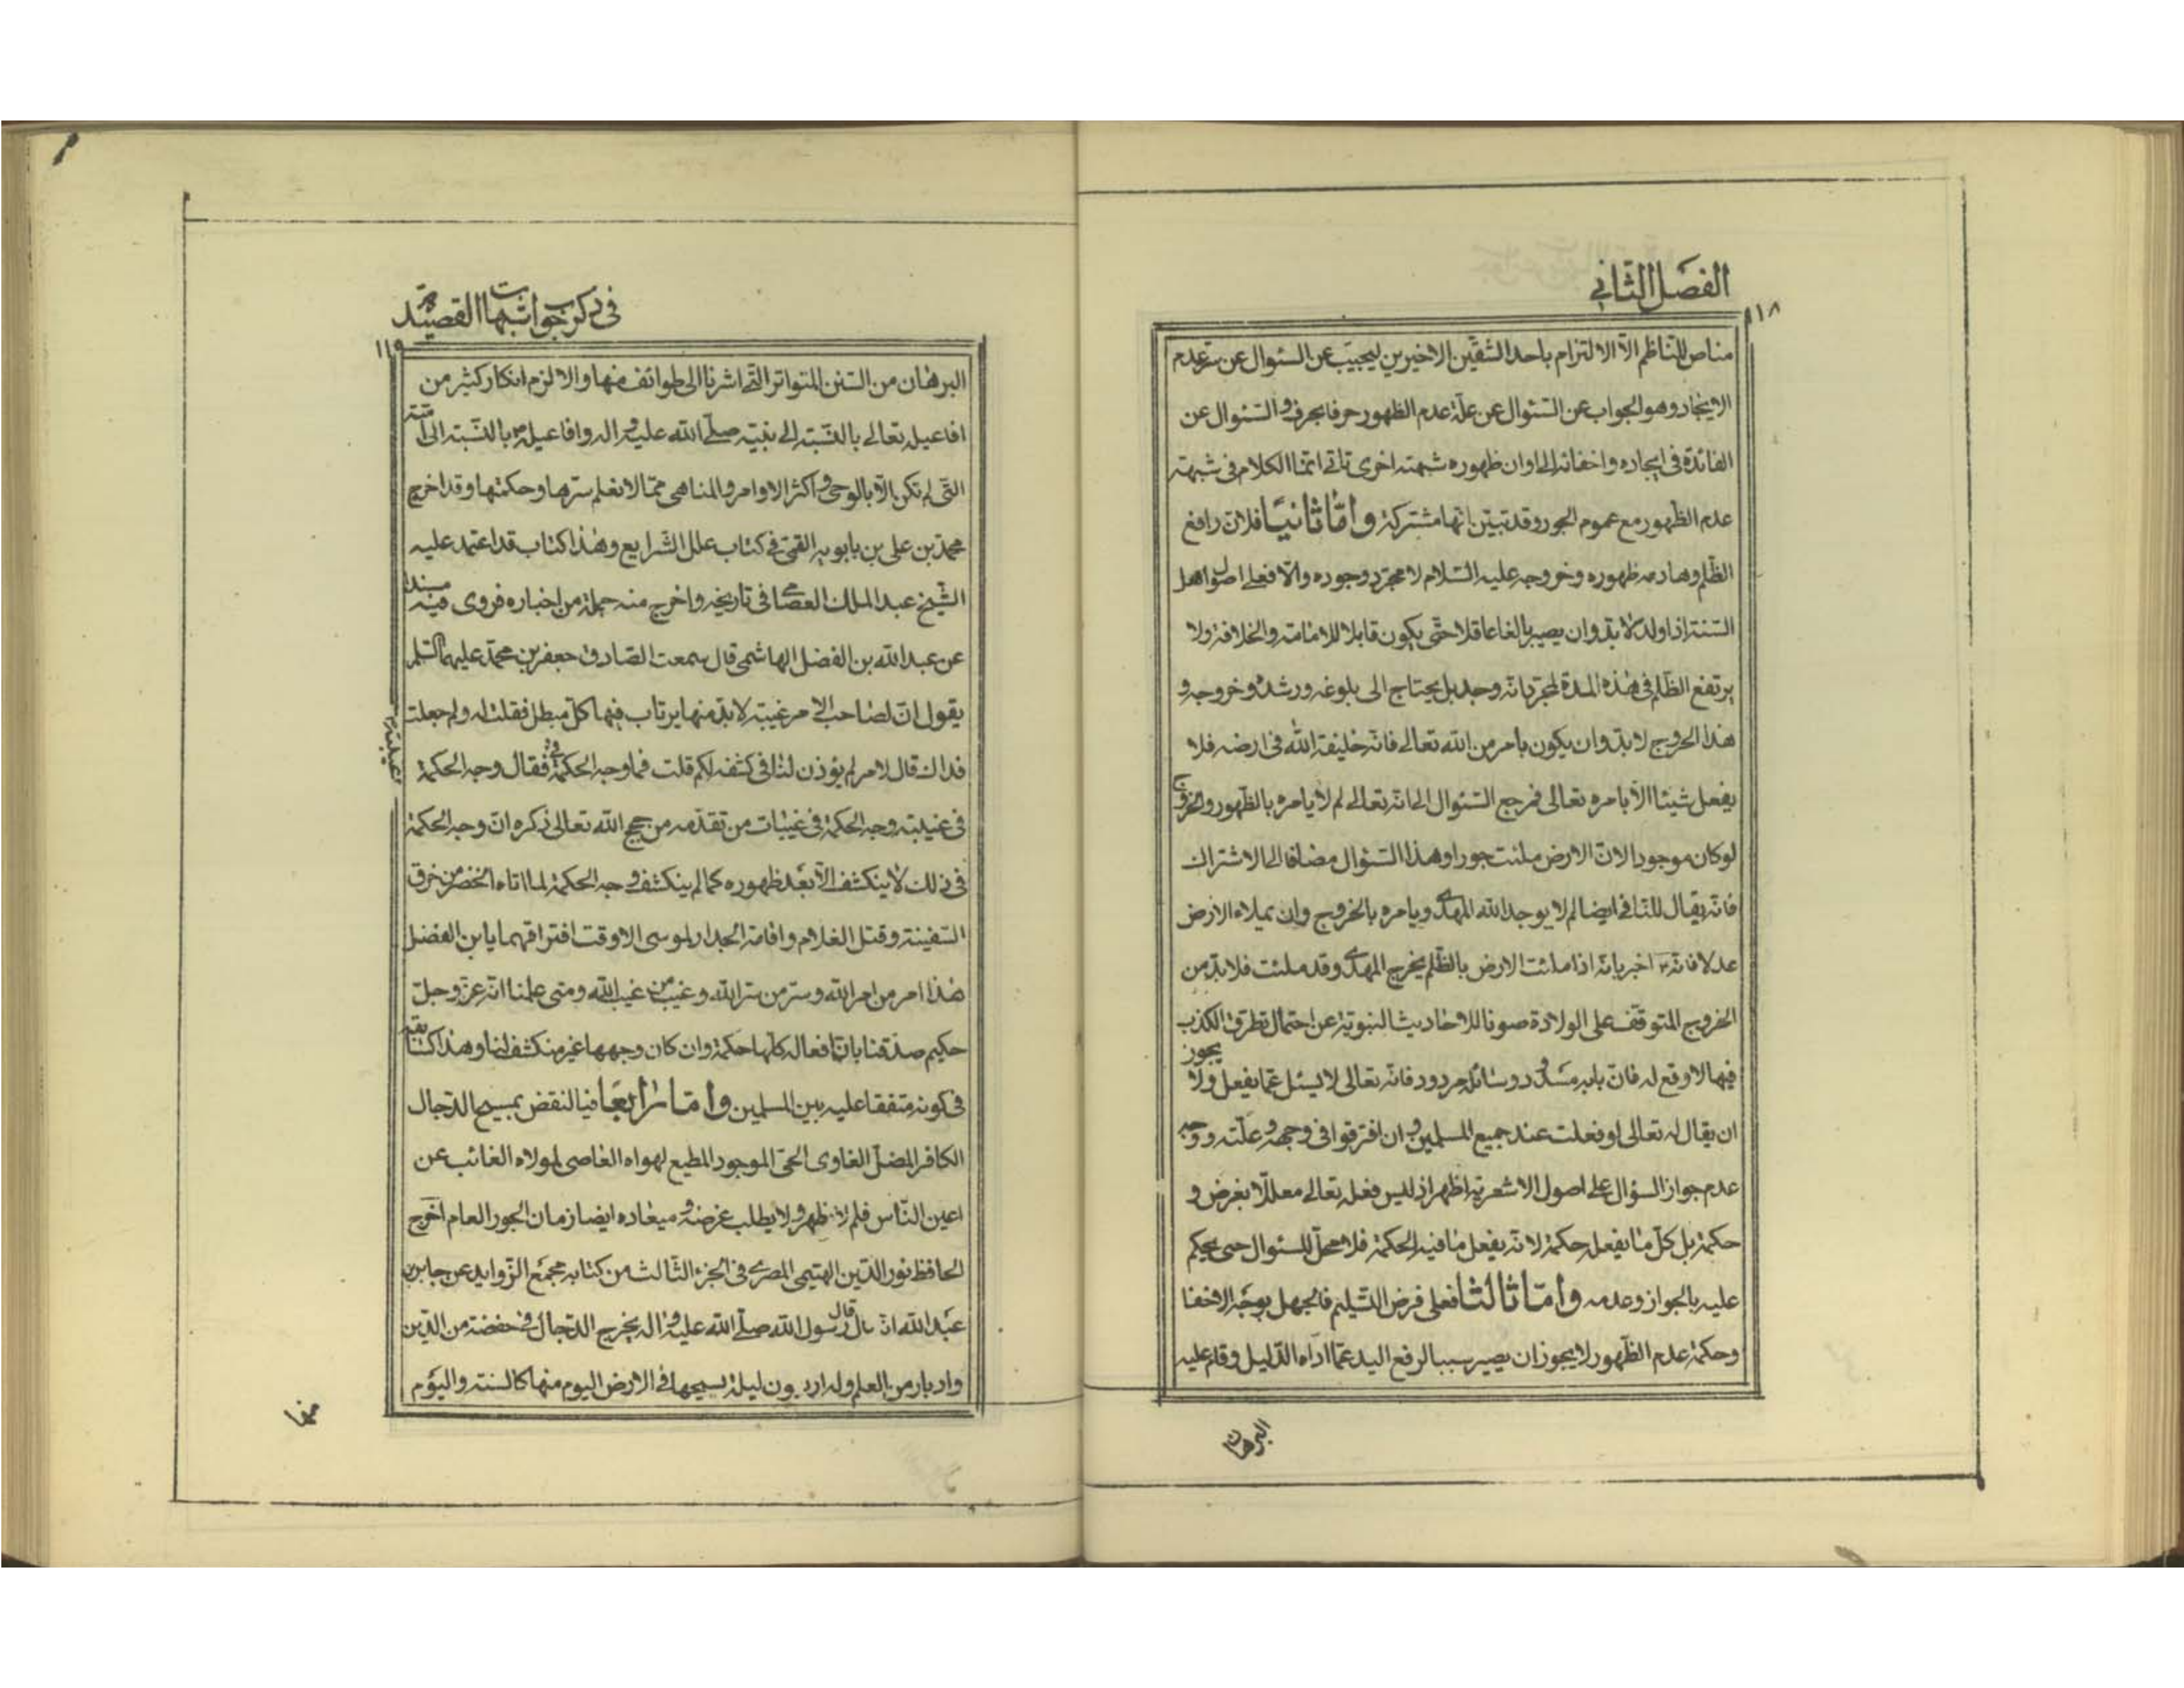 الفصل الثاني
١١٨
مناص للناظم الا الالتزام باحد الشقين الاخيرين ليجيب عن السئوال عن سر عدم
الايجاد وهو الجواب عن السئوال عن علة عدم الظهور حرفا بحرف والسئوال عن
الفائدة في ايجاده واخفائه الى اوان ظهوره شبهة اخرى تاتي انما الكلام في شبهة
عدم الظهور مع عموم الجور وقد تبين انها مشتركة واما ثانيا فلان رافع
الظلم وهادمه ظهوره وخروجه عليه السلام لا مجرد وجوده والا فعلى اصول اهل
السنة اذا ولد لا بد وان يصير بالغا عاقلا حتى يكون قابلا للامامة والخلافة ولا
يرتفع الظلم في هذه المدة لمجرد انه وجد بل يحتاج الى بلوغه ورشده وخروجه و
هذا الخروج لا بد وان يكون بامر من الله تعالى فانه خليفة الله في ارضه فلا
يفعل شيئا الا بامره تعالى فمرجع السئوال الى انه تعالى لم لا يامره بالظهور والخروج
لو كان موجودا لان الارض ملئت جورا وهذا السئوال مضافا الى الاشتراك
فانه يقال للنافي ايضا لم لا يوجد الله المهدى ويامره بالخروج وان يملاء الارض
عدلا فانه ص اخبر بانه اذا ملئت الارض بالظلم يخرج المهدى وقد ملئت فلا بد من
الخروج المتوقف على الولادة صونا للاحاديث النبوية عن احتمال تطرق الكذب
فيها لا وقع له فان بابه مسدود وسائله مردود فانه تعالى لا يسئل عما يفعل ولا يجوز
ان يقال له تعالى لو فعلت عند جميع المسلمين وان افترقوا في وجهه وعلته ووجه
عدم جواز السؤال على اصول الاشعرية اظهر اذ ليس فعله تعالى معللا بغرض و
حكمة بل كل ما يفعل حكمة لا انه يفعل ما فيه الحكمة فلا محل للسئوال حتى يحكم
عليه بالجواز وعدمه واما ثالثا فعلى فرض التسليم فالجهل بوجه الاخفا
وحكمة عدم الظهور لا يجوز ان يصير سببا لرفع اليد عما اداه الدليل وقام عليه
البرهان
في ذكر جواب شبهات القصيدة
١١٩
البرهان من السنن المتواتر التي اشرنا الى طوائف منها والا لزم انكار كثير من
افاعيله تعالى بالنسبة الى نبيه صلى الله عليه واله وافاعيله ص بالنسبة الى امته
التي لم تكن الا بالوحى واكثر الاوامر والمناهى مما لا نعلم سرها وحكمتها وقد اخرج
محمد بن على بن بابويه القمى في كتاب علل الشرايع وهذا كتاب قد اعتمد عليه
الشيخ عبد الملك العصامى في تاريخه واخرج منه جملة من اخباره فروى فيه مسندا
عن عبد الله بن الفضل الهاشمى قال سمعت الصادق جعفر بن محمد عليهما السلم
يقول ان لصاحب الامر غيبة لا بد منها يرتاب فيها كل مبطل فقلت له ولم جعلت
فداك قال لامر لم يؤذن لنا في كشفه لكم قلت فما وجه الحكمة في غيبته فقال وجه الحكمة
في غيبته وجه الحكمة في غيبات من تقدمه من حجج الله تعالى ذكره ان وجه الحكمة
في ذلك لا ينكشف الا بعد ظهوره كما لم ينكشف وجه الحكمة لما اتاه الخضر من خرق
السفينة وقتل الغلام واقامة الجدار لموسى الا وقت افتراقهما يابن الفضل
هذا امر من امر الله وسر من سر الله وغيب من غيب الله ومتى علمنا انه عز وجل
حكيم صدقنا بان افعاله كلها حكمة وان كان وجهها غير منكشف لنا وهذا كسابقه
في كونه متفقا عليه بين المسلمين واما رابعا فبالنقض بمسيح الدجال
الكافر المضل الغاوى الحى الموجود المطيع لهواه العاصى لمولاه الغائب عن
اعين الناس فلم لا يظهر ولا يطلب غرضه وميعاده ايضا زمان الجور العام اخرج
الحافظ نور الدين الهتيمى المصرى في الجزء الثالث من كتابه مجمع الزوايد عن جابر بن
عبد الله انه قال قال رسول الله صلى الله عليه واله يخرج الدجال في خفضة من الدين
وادبار من العلم وله اربعون ليلة يسيحها في الارض اليوم منها كالسنة واليوم
منها